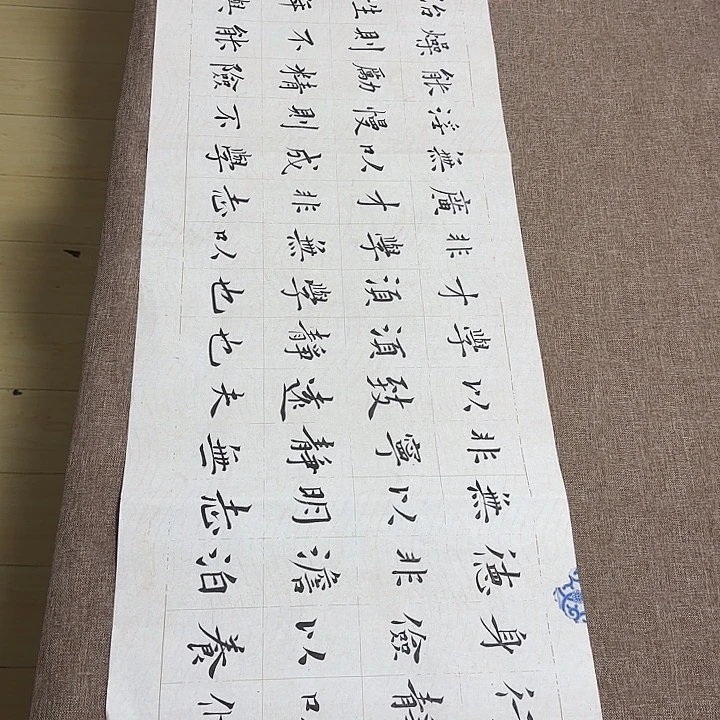 行靜以
身儉以養
德非澹泊
無以明志
非寧靜無
以致遠夫
學須靜也
才須學也
非學無以
廣才非志
無以成學
淫慢則不
能勵精險
躁則不能
冶性年與